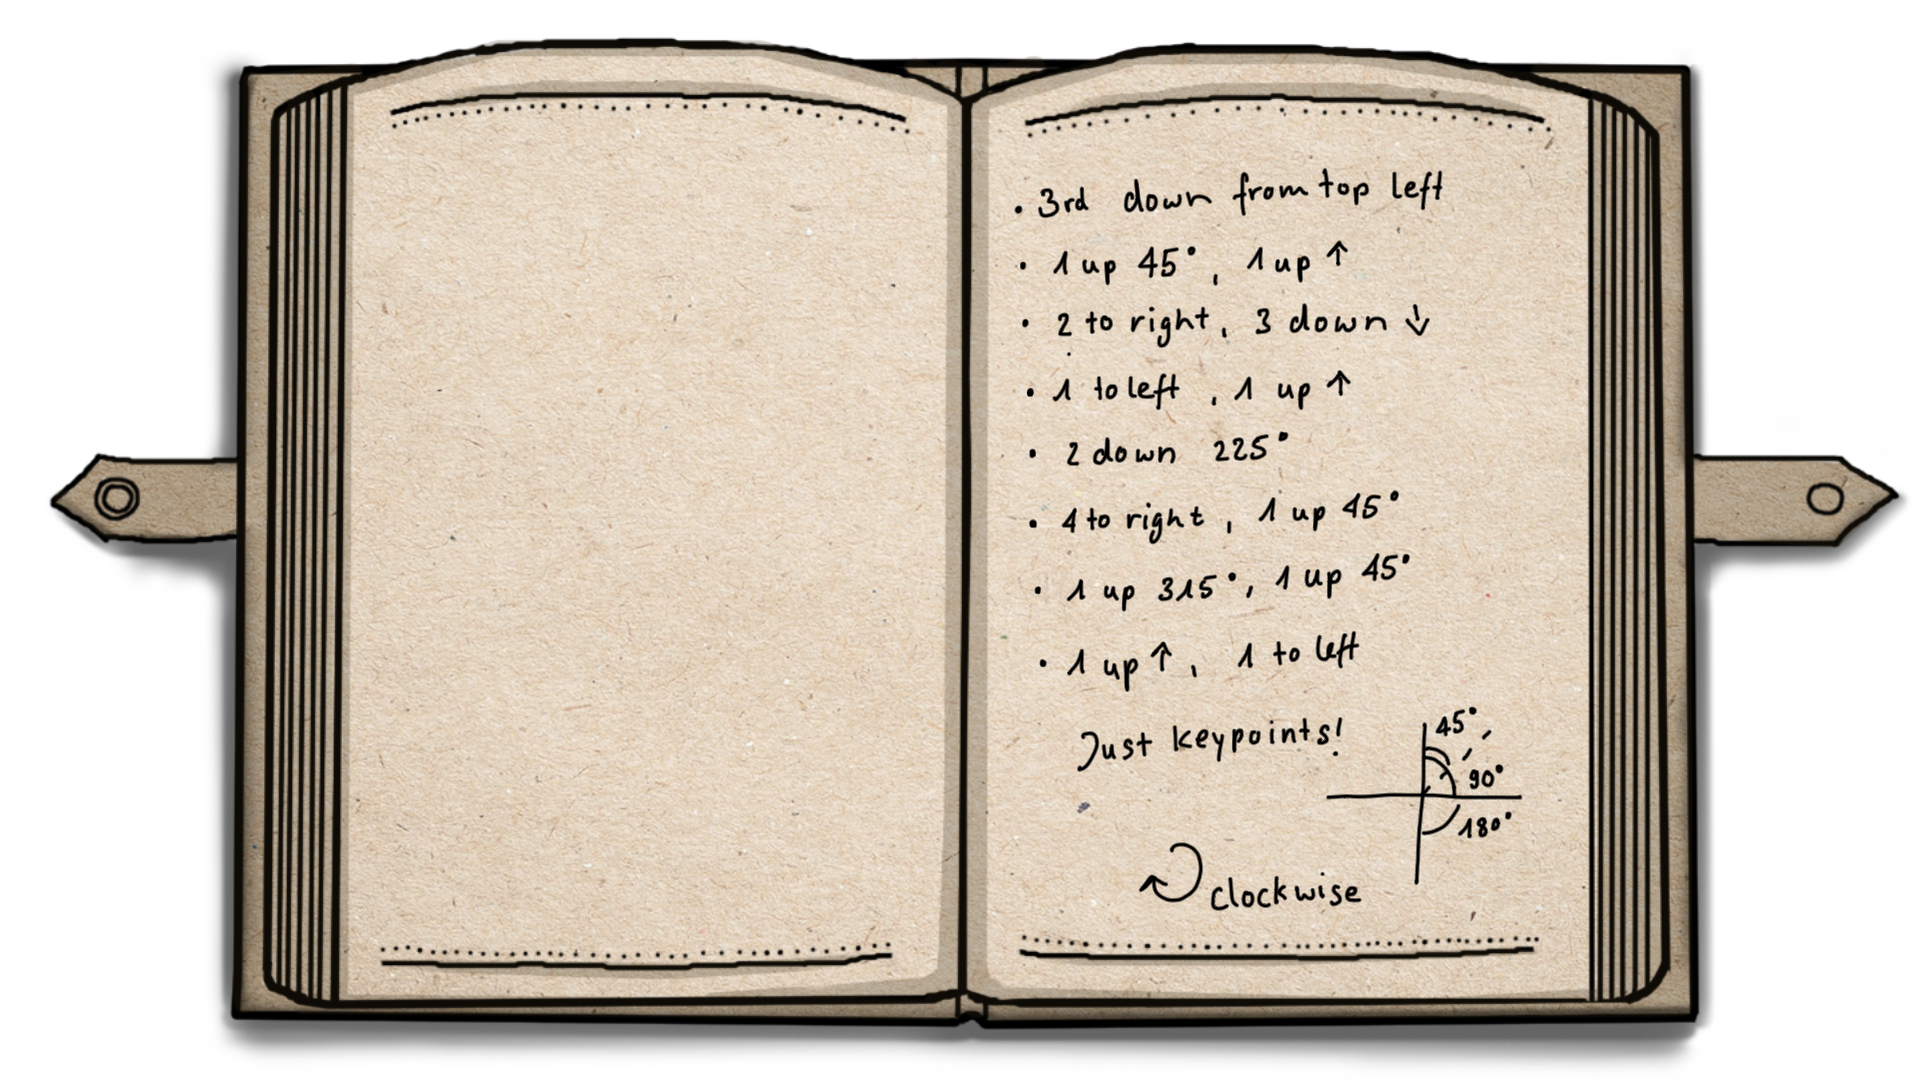 • 3rd down from top left
• 1 up 45°, 1 up ↑
• 2 to right, 3 down ↓
• 1 to left, 1 up ↑
• 2 down 225°
• 4 to right, 1 up 45°
• 1 up 315°, 1 up 45°
• 1 up ↑, 1 to left
Just keypoints!
45°
90°
180°
clockwise